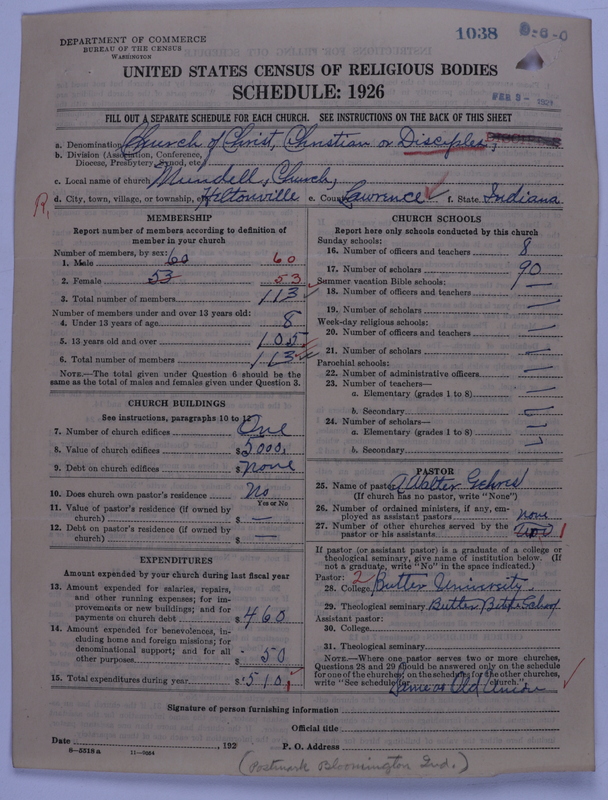 1038
DEPARTMENT OF COMMERCE
BUREAU OF THE CENSUS
WASHINGTON
UNITED STATES CENSUS OF RELIGIOUS BODIES
SCHEDULE: 1926
FILL OUT A SEPARATE SCHEDULE FOR EACH CHURCH. SEE INSTRUCTIONS ON THE BACK OF THIS SHEET
a. Denomination Church of Christ, Christian or Disciples
b. Division (Association, Conference, Diocese, Presbytery, Synod, etc.)
c. Local name of church Mundell, Church,
d. City, town, village, or township, etc. Hiltonville e. County Lawrence f. State Indiana
R,
MEMBERSHIP
Report number of members according to definition of
member in your church
Number of members, by sex:
1. Male 60 60
2. Female 53 53
3. Total number of members 113
Number of members under and over 13 years old:
4. Under 13 years of age 8
5. 13 years old and over 105
6. Total number of members 113
NOTE.—The total given under Question 6 should be the
same as the total of males and females given under Question 3.
CHURCH BUILDINGS
See instructions, paragraphs 10 to 12
7. Number of church edifices One
8. Value of church edifices $5000.
9. Debt on church edifices $ none
10. Does church own pastor's residence No
Yes or No
11. Value of pastor's residence (if owned by
church) $ —
12. Debt on pastor's residence (if owned by
church) $ —
EXPENDITURES
Amount expended by your church during last fiscal year
13. Amount expended for salaries, repairs,
and other running expenses; for im-
provements or new buildings; and for
payments on church debt $ 460
14. Amount expended for benevolences, in-
cluding home and foreign missions; for
denominational support; and for all
other purposes 50
15. Total expenditures during year $ 510
CHURCH SCHOOLS
Report here only schools conducted by this church
Sunday schools:
16. Number of officers and teachers 8
17. Number of scholars 90
Summer vacation Bible schools:
18. Number of officers and teachers —
19. Number of scholars —
Week-day religious schools:
20. Number of officers and teachers —
21. Number of scholars —
Parochial schools:
22. Number of administrative officers —
23. Number of teachers—
a. Elementary (grades 1 to 8)
b. Secondary
24. Number of scholars—
a. Elementary (grades 1 to 8)
b. Secondary
PASTOR
25. Name of pastor Walter
(If church has no pastor, write "None")
26. Number of ordained ministers, if any, em-
ployed as assistant pastors none
27. Number of other churches served by the
pastor or his assistants 1
If pastor (or assistant pastor) is a graduate of a college or
theological seminary, give name of institution below. (If
not a graduate, write "No" in the space indicated.)
Pastor: 2
28. College Butler University
29. Theological seminary Butler Bible School
Assistant pastor:
30. College
31. Theological seminary
NOTE.—Where one pastor serves two or more churches,
Questions 28 and 29 should be answered only on the schedule
for one of the churches; on the schedules for the other churches,
write "See schedule for church."
Same as Old Union
Signature of person furnishing information
Official title
Date , 192 P. O. Address
8—5318a 11—9864
(Postmark Bloomington Ind.)